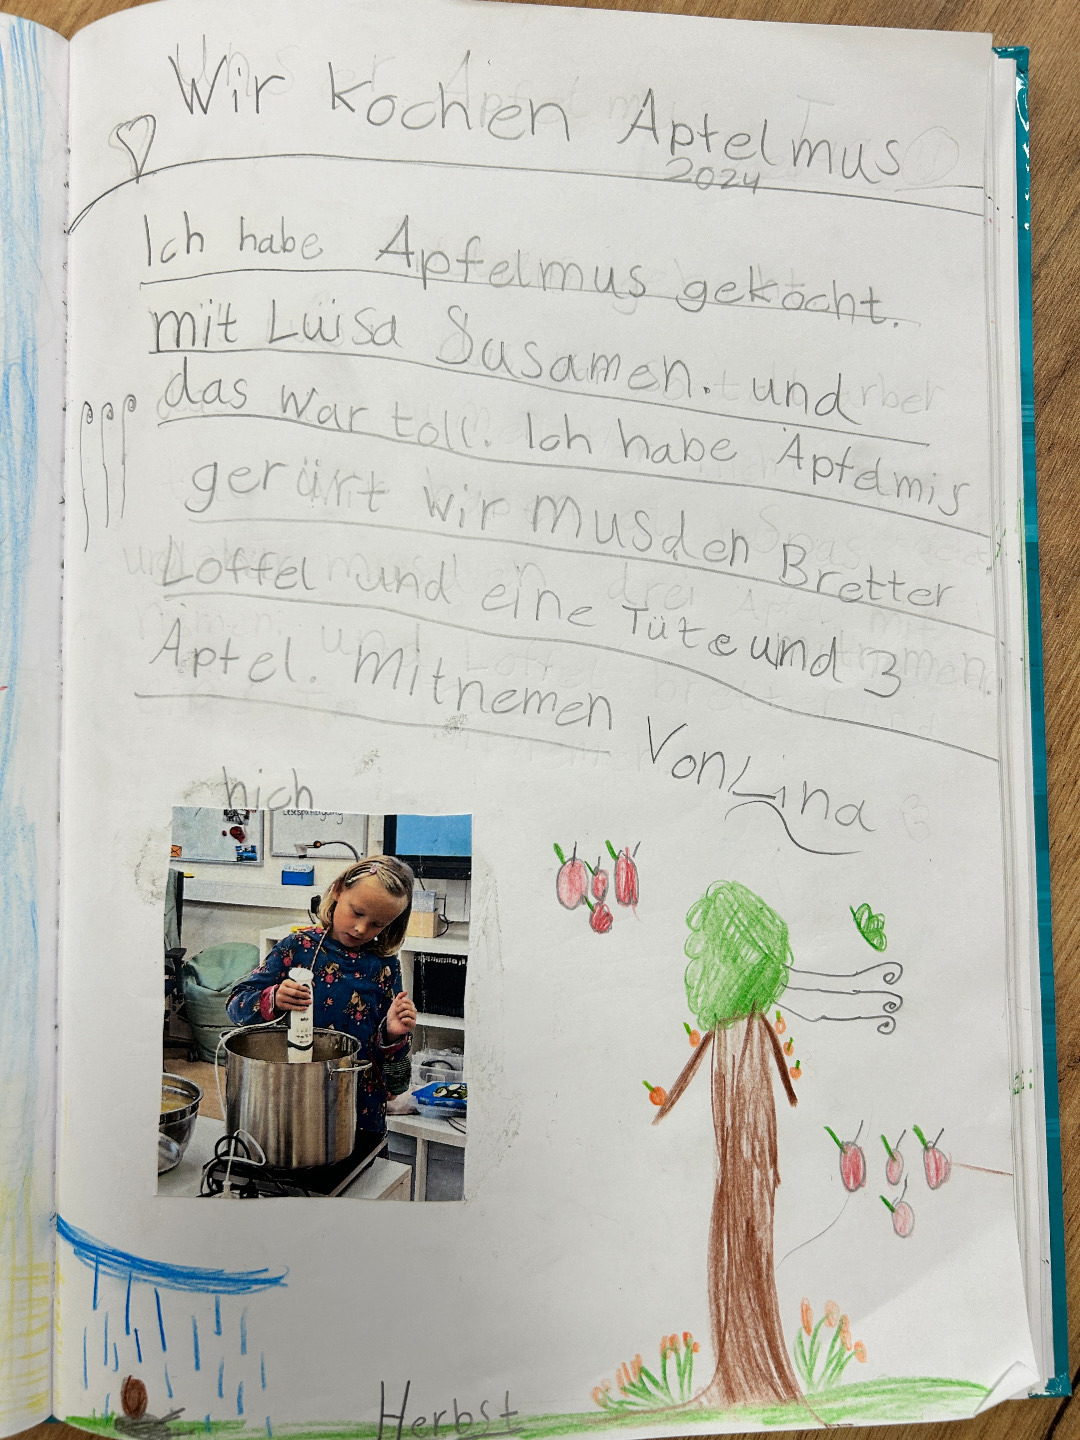 Wir kochen Aptelmus
2024
Ich habe Apfelmus gekocht.
mit Luisa Susamen. und
das war toll. Ich habe Aptelmis
gerürt wir musden Bretter
Loffel und eine Tüte und 3
Aptel. Mitnemen
Von Lina
hich
Herbst